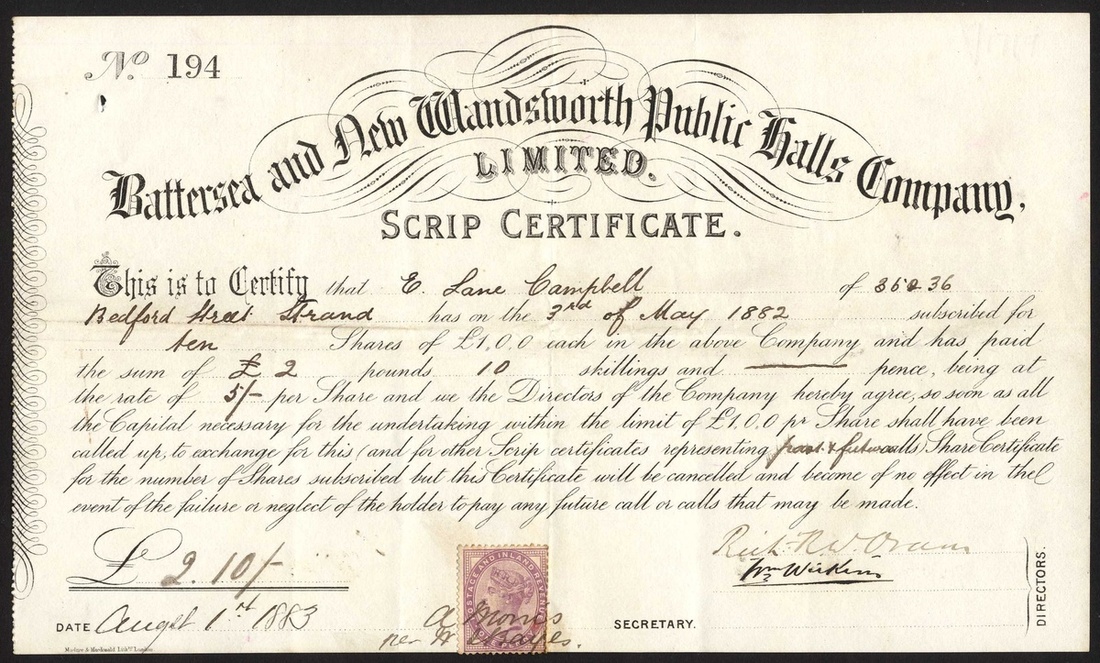 No 194
Battersea and New Wandsworth Public Halls Company,
LIMITED.
SCRIP CERTIFICATE.
This is to Certify that E. Lane Campbell of 35 & 36
Bedford Street Strand has on the 3rd of May 1882 subscribed for
ten Shares of £1,0,0 each in the above Company and has paid
the sum of £ 2 pounds 10 shillings and — pence, being at
the rate of 5/- per Share and we the Directors of the Company hereby agree, so soon as all
the Capital necessary for the undertaking within the limit of £1,0,0 pr Share shall have been
called up, to exchange for this (and for other Scrip certificates representing past & future calls) Share Certificate
for the number of Shares subscribed but this Certificate will be cancelled and become of no effect in the
event of the failure or neglect of the holder to pay any future call or calls that may be made.
£ 2.10/-
Richd. R. W. Oram
Wm Wilkins
DIRECTORS.
POSTAGE AND INLAND REVENUE
DATE Augst 1st 1883
A Morris
per W Bayes.
SECRETARY.
Maclure & Macdonald, Lith. London